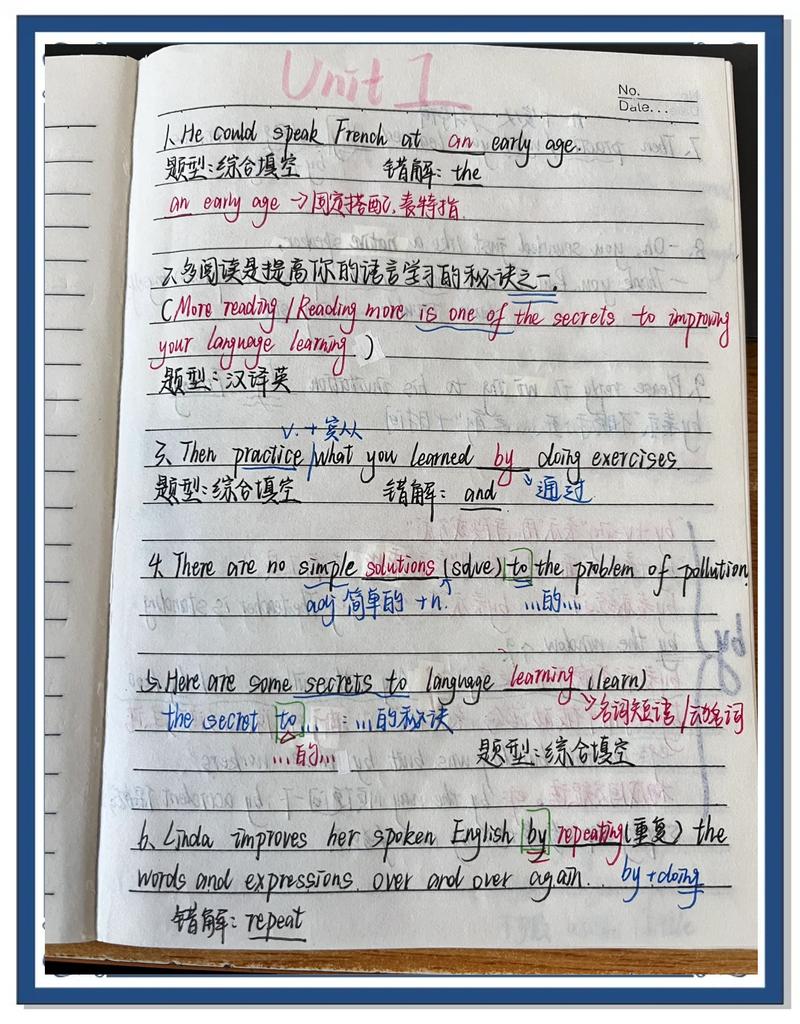 Unit 1
No.
Date...
1. He could speak French at an early age.
题型:综合填空 错解: the
an early age →固定搭配,表特指.
2.多阅读是提高你的语言学习的秘诀之一.
(More reading / Reading more is one of the secrets to improving
your language learning.)
题型:汉译英
v. + 宾从
3. Then practice / what you learned by doing exercises
题型:综合填空 错解: and 通过
4. There are no simple solutions (solve) to the problem of pollution.
adj 简单的 + n. ...的...
5. Here are some secrets to language learning (learn)
the secret to... : ...的秘诀 名词短语/动名词
...的... 题型:综合填空
6. Linda improves her spoken English by repeating(重复) the
words and expressions over and over again. by + doing
错解: repeat